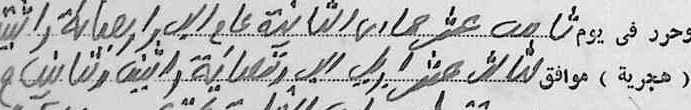 وحرر فى يوم ثامن عشر جمادى الثانية عام الف واربعمائة واثنين
( هجرية ) موافق ثالث عشر ابريل الف وتسعمائة واثنين وثمانين م